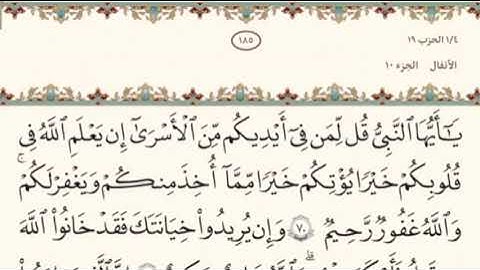 ١/٤ الحزب ١٩
١٨٥
الأنفال الجزء ١٠
يَٰٓأَيُّهَا ٱلنَّبِيُّ قُل لِّمَن فِيٓ أَيۡدِيكُم مِّنَ ٱلۡأَسۡرَىٰٓ إِن يَعۡلَمِ ٱللَّهُ فِي
قُلُوبِكُمۡ خَيۡرٗا يُؤۡتِكُمۡ خَيۡرٗا مِّمَّآ أُخِذَ مِنكُمۡ وَيَغۡفِرۡ لَكُمۡۚ
وَٱللَّهُ غَفُورٞ رَّحِيمٞ ٧٠ وَإِن يُرِيدُواْ خِيَانَتَكَ فَقَدۡ خَانُواْ ٱللَّهَ